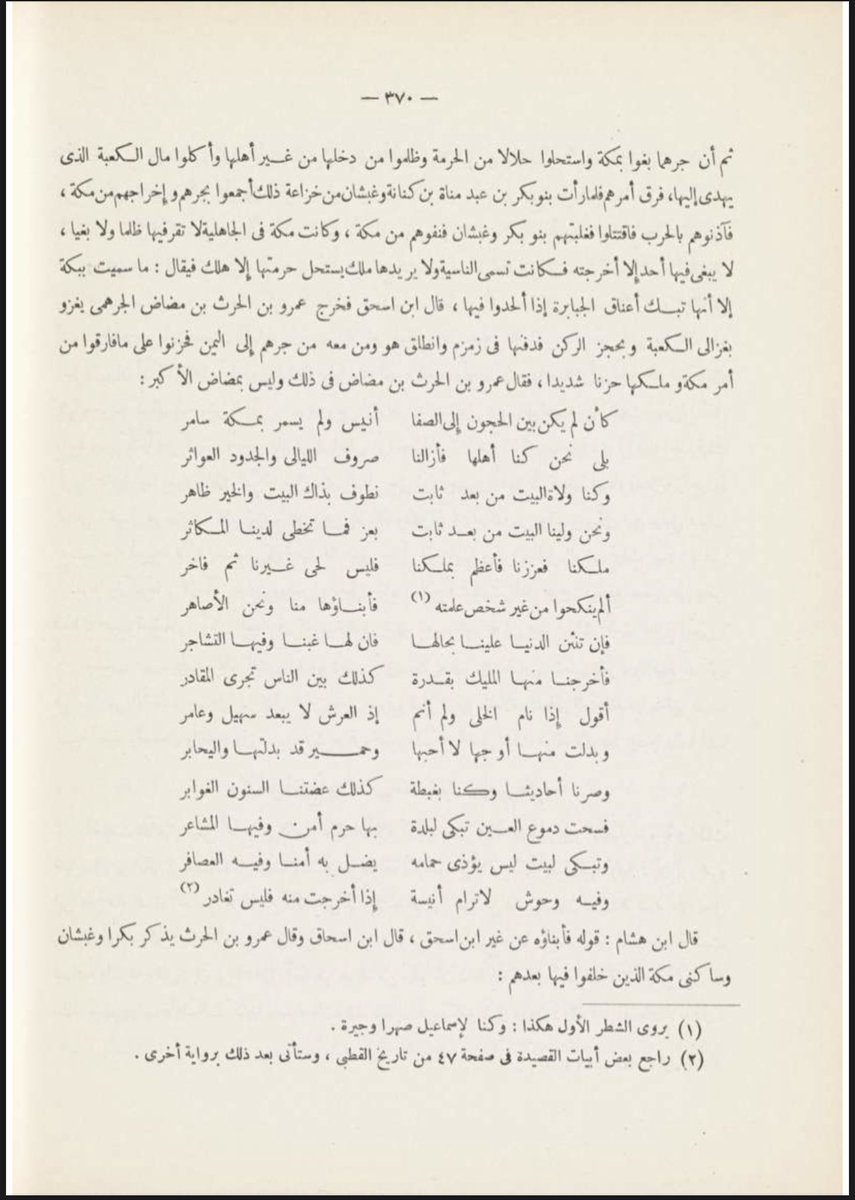 — ٣٧٠ —
ثم أن جرهما بغوا بمكة واستحلوا حلالا من الحرمة وظلموا من دخلها من غير أهلها وأكلوا مال الكعبة الذى
يهدى إليها، فرق أمرهم فلما رأت بنو بكر بن عبد مناة بن كنانة وغبشان من خزاعة ذلك أجمعوا بجرهم و إخراجهم من مكة ،
فآذنوهم بالحرب فاقتتلوا فغلبتهم بنو بكر وغبشان فنفوهم من مكة ، وكانت مكة فى الجاهلية لا تقر فيها ظلما ولا بغيا ،
لا يبغى فيها أحد إلا أخرجته فكانت تسمى الناسية ولا يريدها ملك يستحل حرمتها إلا هلك فيقال : ما سميت ببكة
إلا أنها تبك أعناق الجبابرة إذا ألحدوا فيها ، قال ابن اسحق فخرج عمرو بن الحرث بن مضاض الجرهمى يغزو
بغزالى الكعبة وبحجز الركن فدفنها فى زمزم وانطلق هو ومن معه من جرهم إلى اليمن فحزنوا على مافارقوا من
أمر مكة و ملكها حزنا شديدا ، فقال عمرو بن الحرث بن مضاض فى ذلك وليس بمضاض الأكبر :
كأن لم يكن بين الحجون إلى الصفا أنيس ولم يسمر بمكة سامر
بلى نحن كنا أهلها فأزالنا صروف الليالى والجدود العواثر
وكنا ولاة البيت من بعد ثابت نطوف بذاك البيت والخير ظاهر
ونحن ولينا البيت من بعد ثابت بعز فما تخطى لدينا المكاثر
ملكنا فعززنا فأعظم بملكنا فليس لحى غيرنا ثم فاخر
ألم ينكحوا من غير شخص علمته (١) فأبناؤها منا ونحن الأصاهر
فإن تنثن الدنيا علينا بحالها فان لها غبنا وفيها التشاجر
فأخرجنا منها المليك بقدرة كذلك بين الناس تجرى المقادر
أقول إذا نام الخلى ولم أنم إذ العرش لا يبعد سهيل وعامر
وبدلت منها أوجها لا أحبها وحمير قد بدلتها واليحابر
وصرنا أحاديثا وكنا بغبطة كذلك عضتنا السنون الغوابر
فسحت دموع العين تبكى لبلدة بها حرم أمن وفيها المشاعر
وتبكى لبيت ليس يؤذى حمامه يضل به أمنا وفيه العصافر
وفيه وحوش لاترام أنيسة إذا أخرجت منه فليس تغادر (٢)
قال ابن هشام : قوله فأبناؤه عن غير ابن اسحق ، قال ابن اسحاق وقال عمرو بن الحرث يذكر بكرا وغبشان
وساكنى مكة الذين خلفوا فيها بعدهم :
(١) يروى الشطر الأول هكذا : وكنا لإسماعيل صهرا وجيرة .
(٢) راجع بعض أبيات القصيدة فى صفحة ٤٧ من تاريخ القطبى ، وستأتى بعد ذلك برواية أخرى .